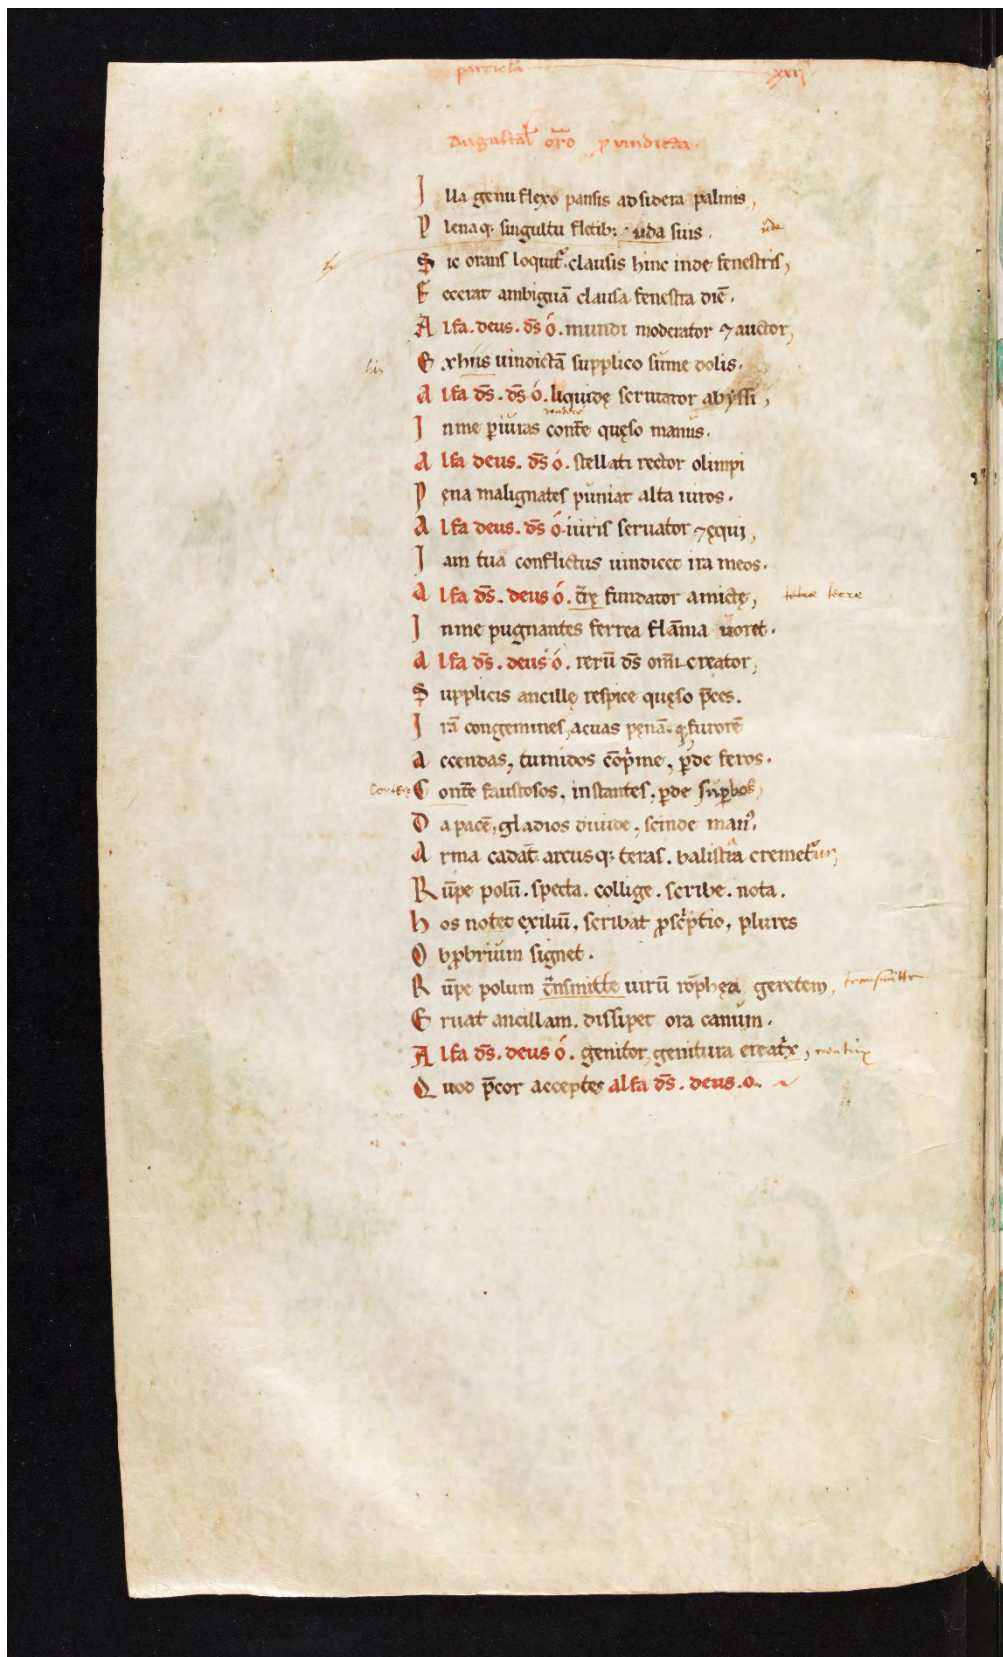 particula xxii
Augustal̄ or̄o ꝓ uindicta.
Illa genu flexo pansis ad sidera palmis,
Plenaq; singultu fletib; uda suis. uda
Sic orans loquit᷑ clausis hinc inde fenestris,
Fecerat ambiguā clausa fenestra diē.
Alfa. deus. d̄s ó. mundi moderator ⁊ auctor,
his Exhiis uindictā supplico sume dolis.
Alfa d̄s. d̄s ó. liquidę scrutator abyssi,
Inme ꝑiuras cont̄e quęso manus.
Alfa deus. d̄s ó. stellati rector olimpi
Pęna malignates puniat alta uiros.
Alfa deus. d̄s ó iuris seruator ⁊ ęqui,
Iam tua conflictus uindicet ira meos.
Alfa d̄s. deus ó. t̄rę fundator amictę, terre
Inme pugnantes ferrea flāma uoret.
Alfa d̄s. deus ó. rerū d̄s om̄i creator,
Supplicis ancillę respice quęso p̄ces.
Irā congemines, acuas pęnā q; furorē
Accendas, tumidos cōp̄me, ꝑde feros.
Cont̄e faustosos, instantes, ꝑde suꝑbos,
Da pacē, gladios diuide, scinde man᷒.
Arma cadāt arcusq; teras. balistra cremet᷑ur,
Rūpe polū. specta. collige. scribe. nota.
Hos notet exiliū, scribat ꝓsc̄ptio, plures
Obꝓbrium signet.
Rūpe polum t̄nsmitte uirū rōphęa geretem, transmitte
Eruat ancillam. dissipet ora canum.
Alfa d̄s. deus ó. genitor, genitura creat̄x, creatrix
Quod p̄cor acceptes alfa d̄s. deus. o.